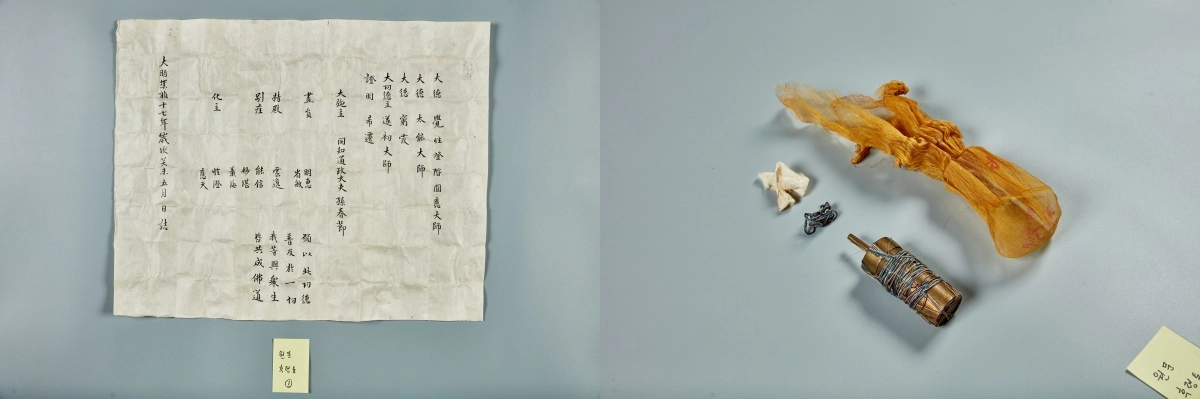 大德 覺性登階圓應大師
大德 太能大師
大德
大功德主 初大師
證明 希
大施主 同知通政大夫 孫春節
畫員 明惠
敏
持殿 雲
別座 能信
妙堪
海
化主 性澄
應天
願以此功德
普及於一切
我等與衆生
皆共成佛道
大明崇禎十七年歲次癸未五月 日 誌
②